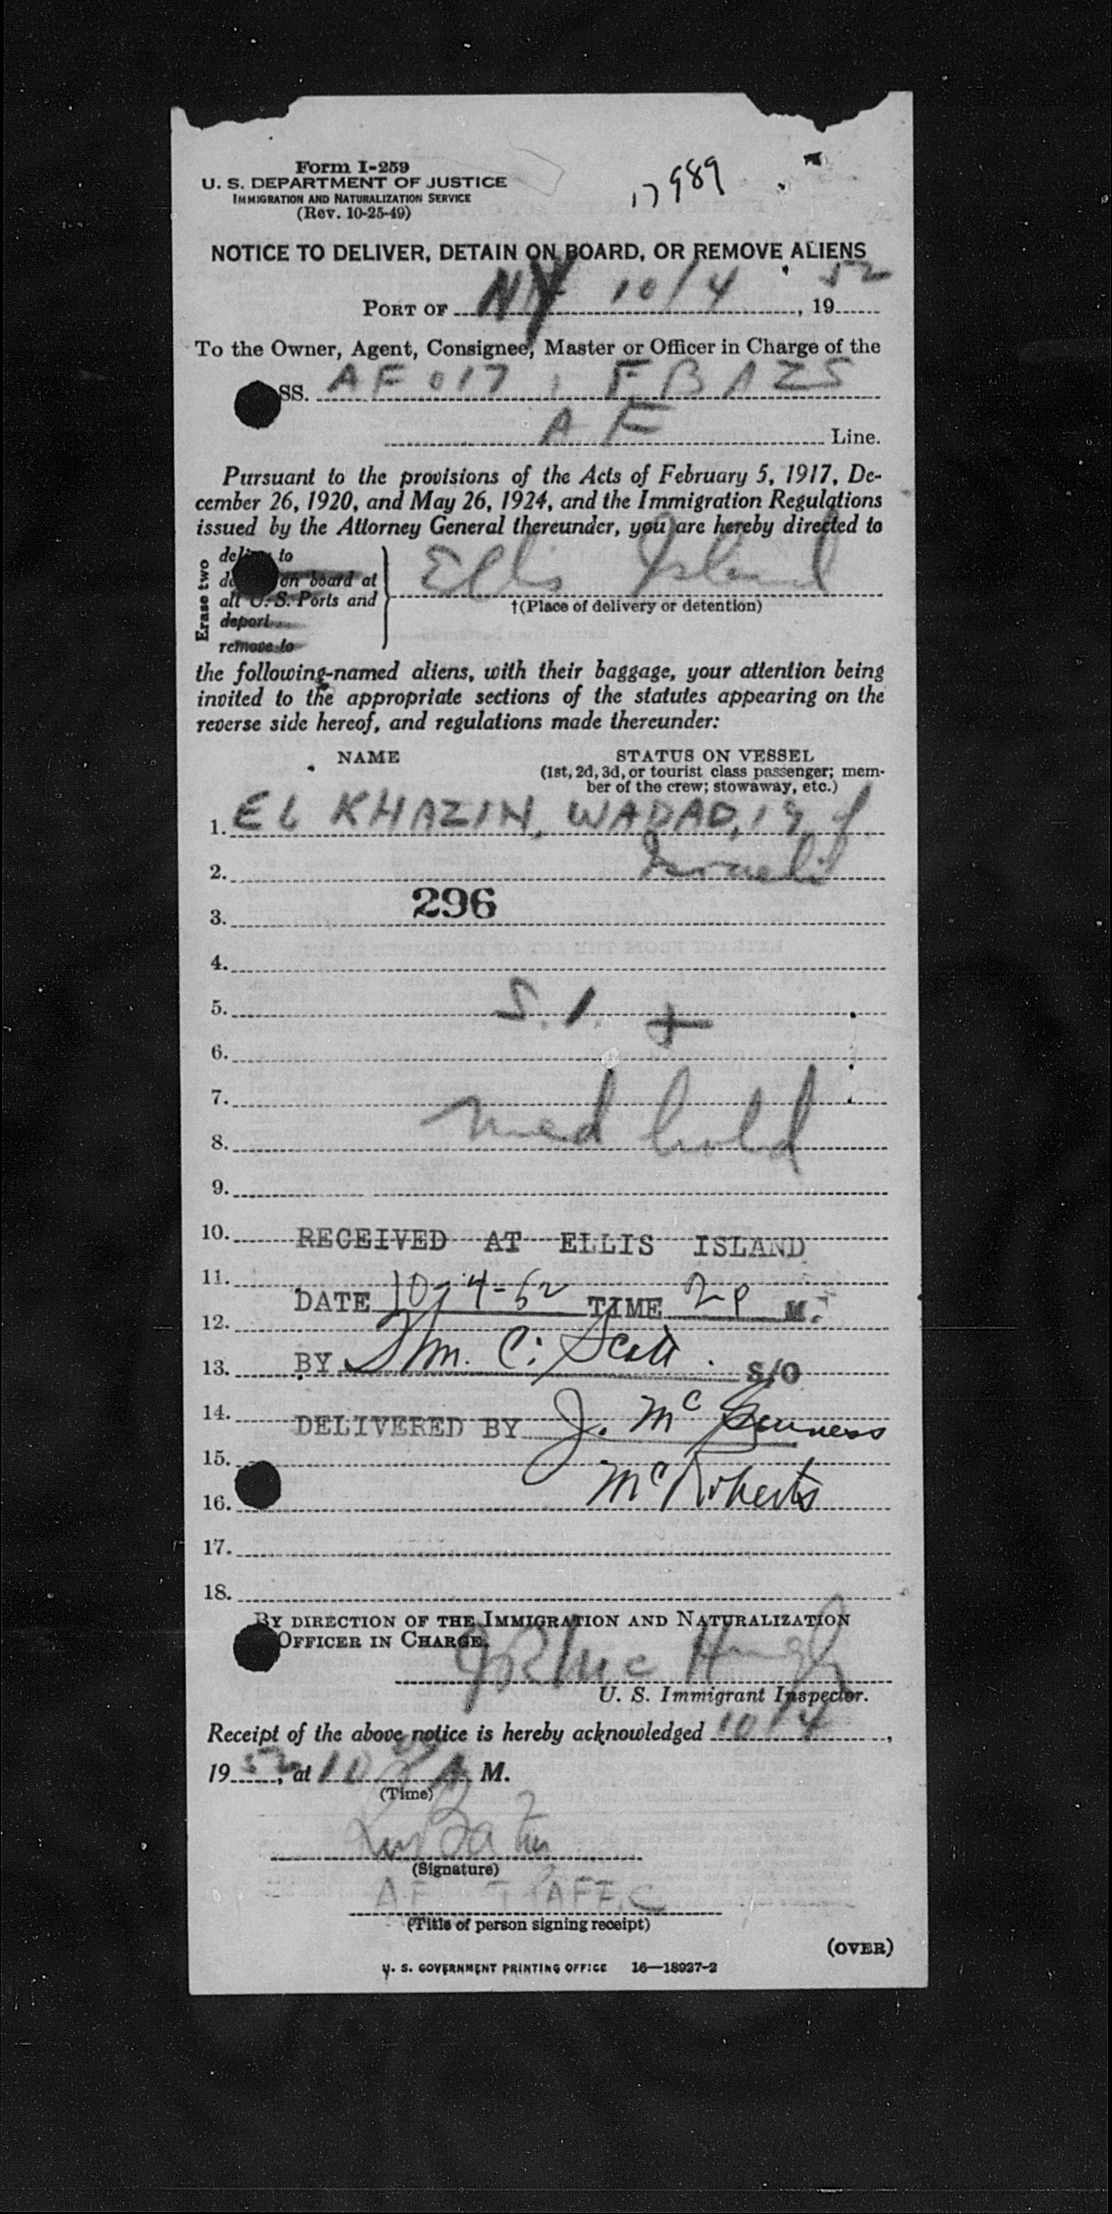 Form I-259
17989
U. S. DEPARTMENT OF JUSTICE
IMMIGRATION AND NATURALIZATION SERVICE
(Rev. 10-25-49)
NOTICE TO DELIVER, DETAIN ON BOARD, OR REMOVE ALIENS
PORT OF NY 10/4, 1952
To the Owner, Agent, Consignee, Master or Officer in Charge of the
SS. AF 017, FBAZS
AF Line.
Pursuant to the provisions of the Acts of February 5, 1917, De-
cember 26, 1920, and May 26, 1924, and the Immigration Regulations
issued by the Attorney General thereunder, you are hereby directed to
Erase two
deliver to
on board at
all U. S. Ports and
deport
remove to
Ellis Island
†(Place of delivery or detention)
the following-named aliens, with their baggage, your attention being
invited to the appropriate sections of the statutes appearing on the
reverse side hereof, and regulations made thereunder:
NAME STATUS ON VESSEL
(1st, 2d, 3d, or tourist class passenger; mem-
ber of the crew; stowaway, etc.)
1. EL KHAZIN, WADAD, 19, f.
2. Israeli
3. 296
4.
5. S. I. +
6.
7.
8. med hold
9.
10. RECEIVED AT ELLIS ISLAND
11.
DATE 10-4-52 TIME 2 P M.
12.
13. BY Wm. C. Scott. S/O
14.
DELIVERED BY J. McGuinness
15.
16. McRoberts
17.
18.
BY DIRECTION OF THE IMMIGRATION AND NATURALIZATION
OFFICER IN CHARGE.
Mc Hugh
U. S. Immigrant Inspector.
Receipt of the above notice is hereby acknowledged 10/4,
1952, at 10 A. M.
(Time)
(Signature)
AF TRAFFIC
(Title of person signing receipt)
(OVER)
U. S. GOVERNMENT PRINTING OFFICE 16—18937-2